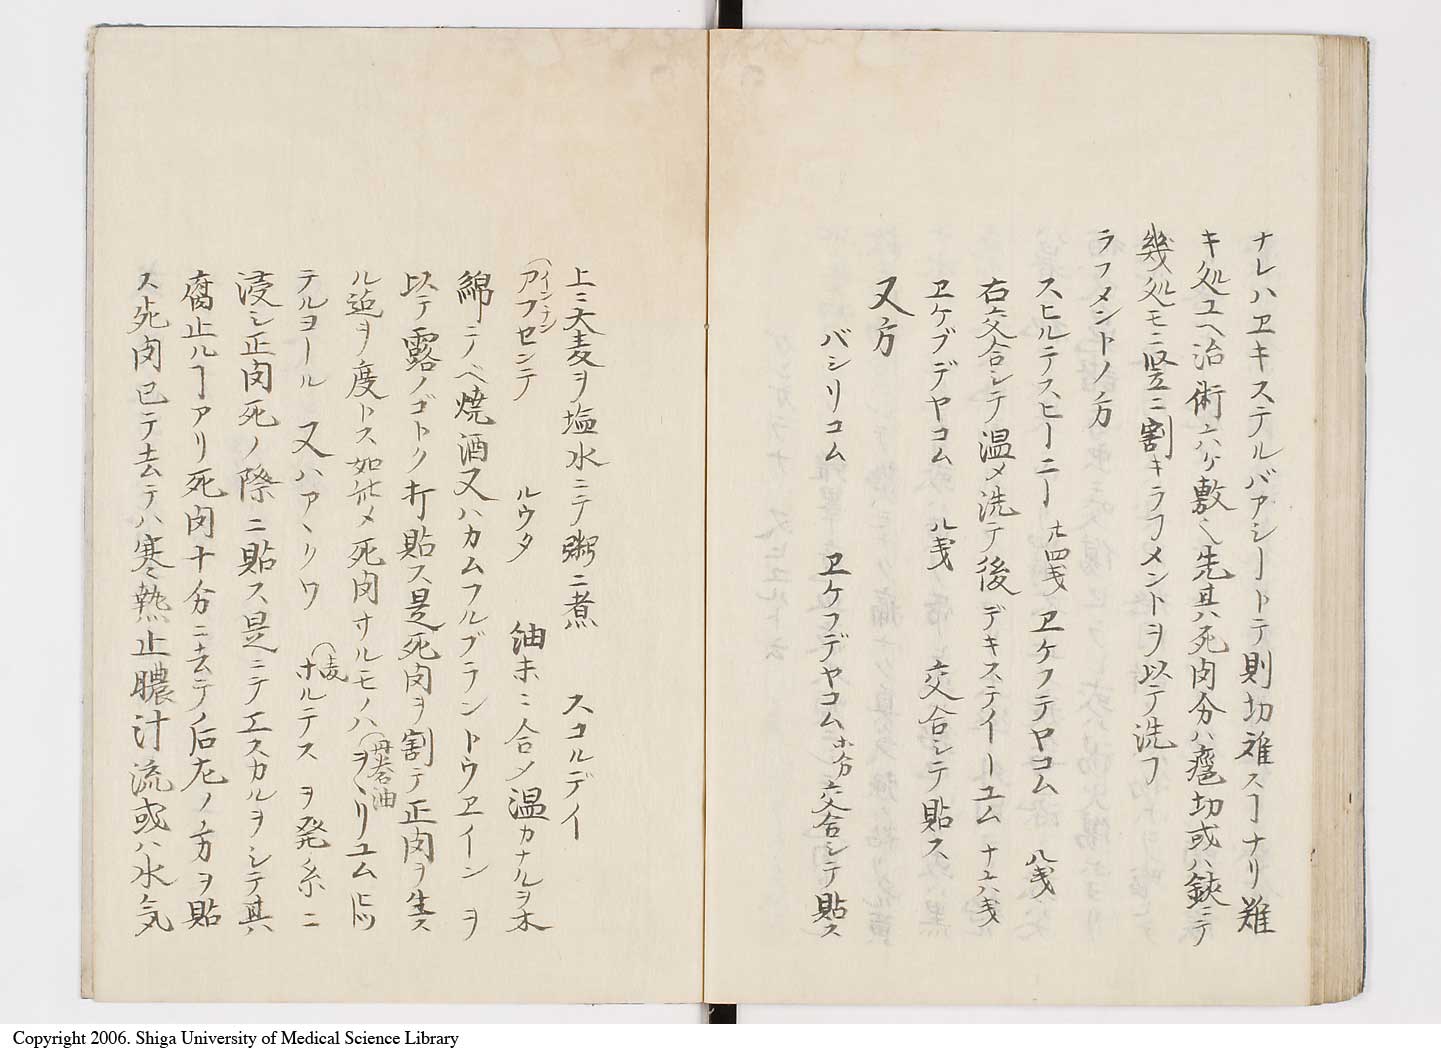 ナレハヱキステルバアシートテ則切難スヿナリ難
キ処ユヘ治術六ケ敷く先其ハ死肉分ハ瘡切或ハ鋏ニテ
幾処モニ竪ニ割キラフメントヲ以テ洗フ
ラフメントノ方
スヒルテスヒーニー 廿四戔 ヱケフテヤコム 八戔
右交合シテ温メ洗テ後デキステイーユム 十六戔
ヱケブデヤコム 八戔 交合シテ貼ス
又方
バシリコム ヱケフデヤコム 等分交合シテ貼ス
上ニ大麦ヲ塩水ニテ粥ニ煮 スコルデイ
(インナン)アフセンテ ルウタ 細末ニ合メ温カナルヲ木
綿ニノベ焼酒又ハカムフルブラントウヱイン ヲ
以テ露ノゴトク打貼ス是死肉ヲ割テ正肉ヲ生ス
ル迠ヲ度トス如能メ死肉サルモノハ(丹石油)ヲヽリユムヒツ
テルヨール 又ハアヽリワ (麦)ホルテス ヲ発糸ニ
浸シ正肉死ノ際ニ貼ス是ニテエスカルヲシテ其ハ
腐止ルヿアリ死肉十分ニ去テノ后左ノ方ヲ貼
ス死肉已テ去テハ寒熱止膿汁流或ハ水気
Copyright 2006. Shiga University of Medical Science Library